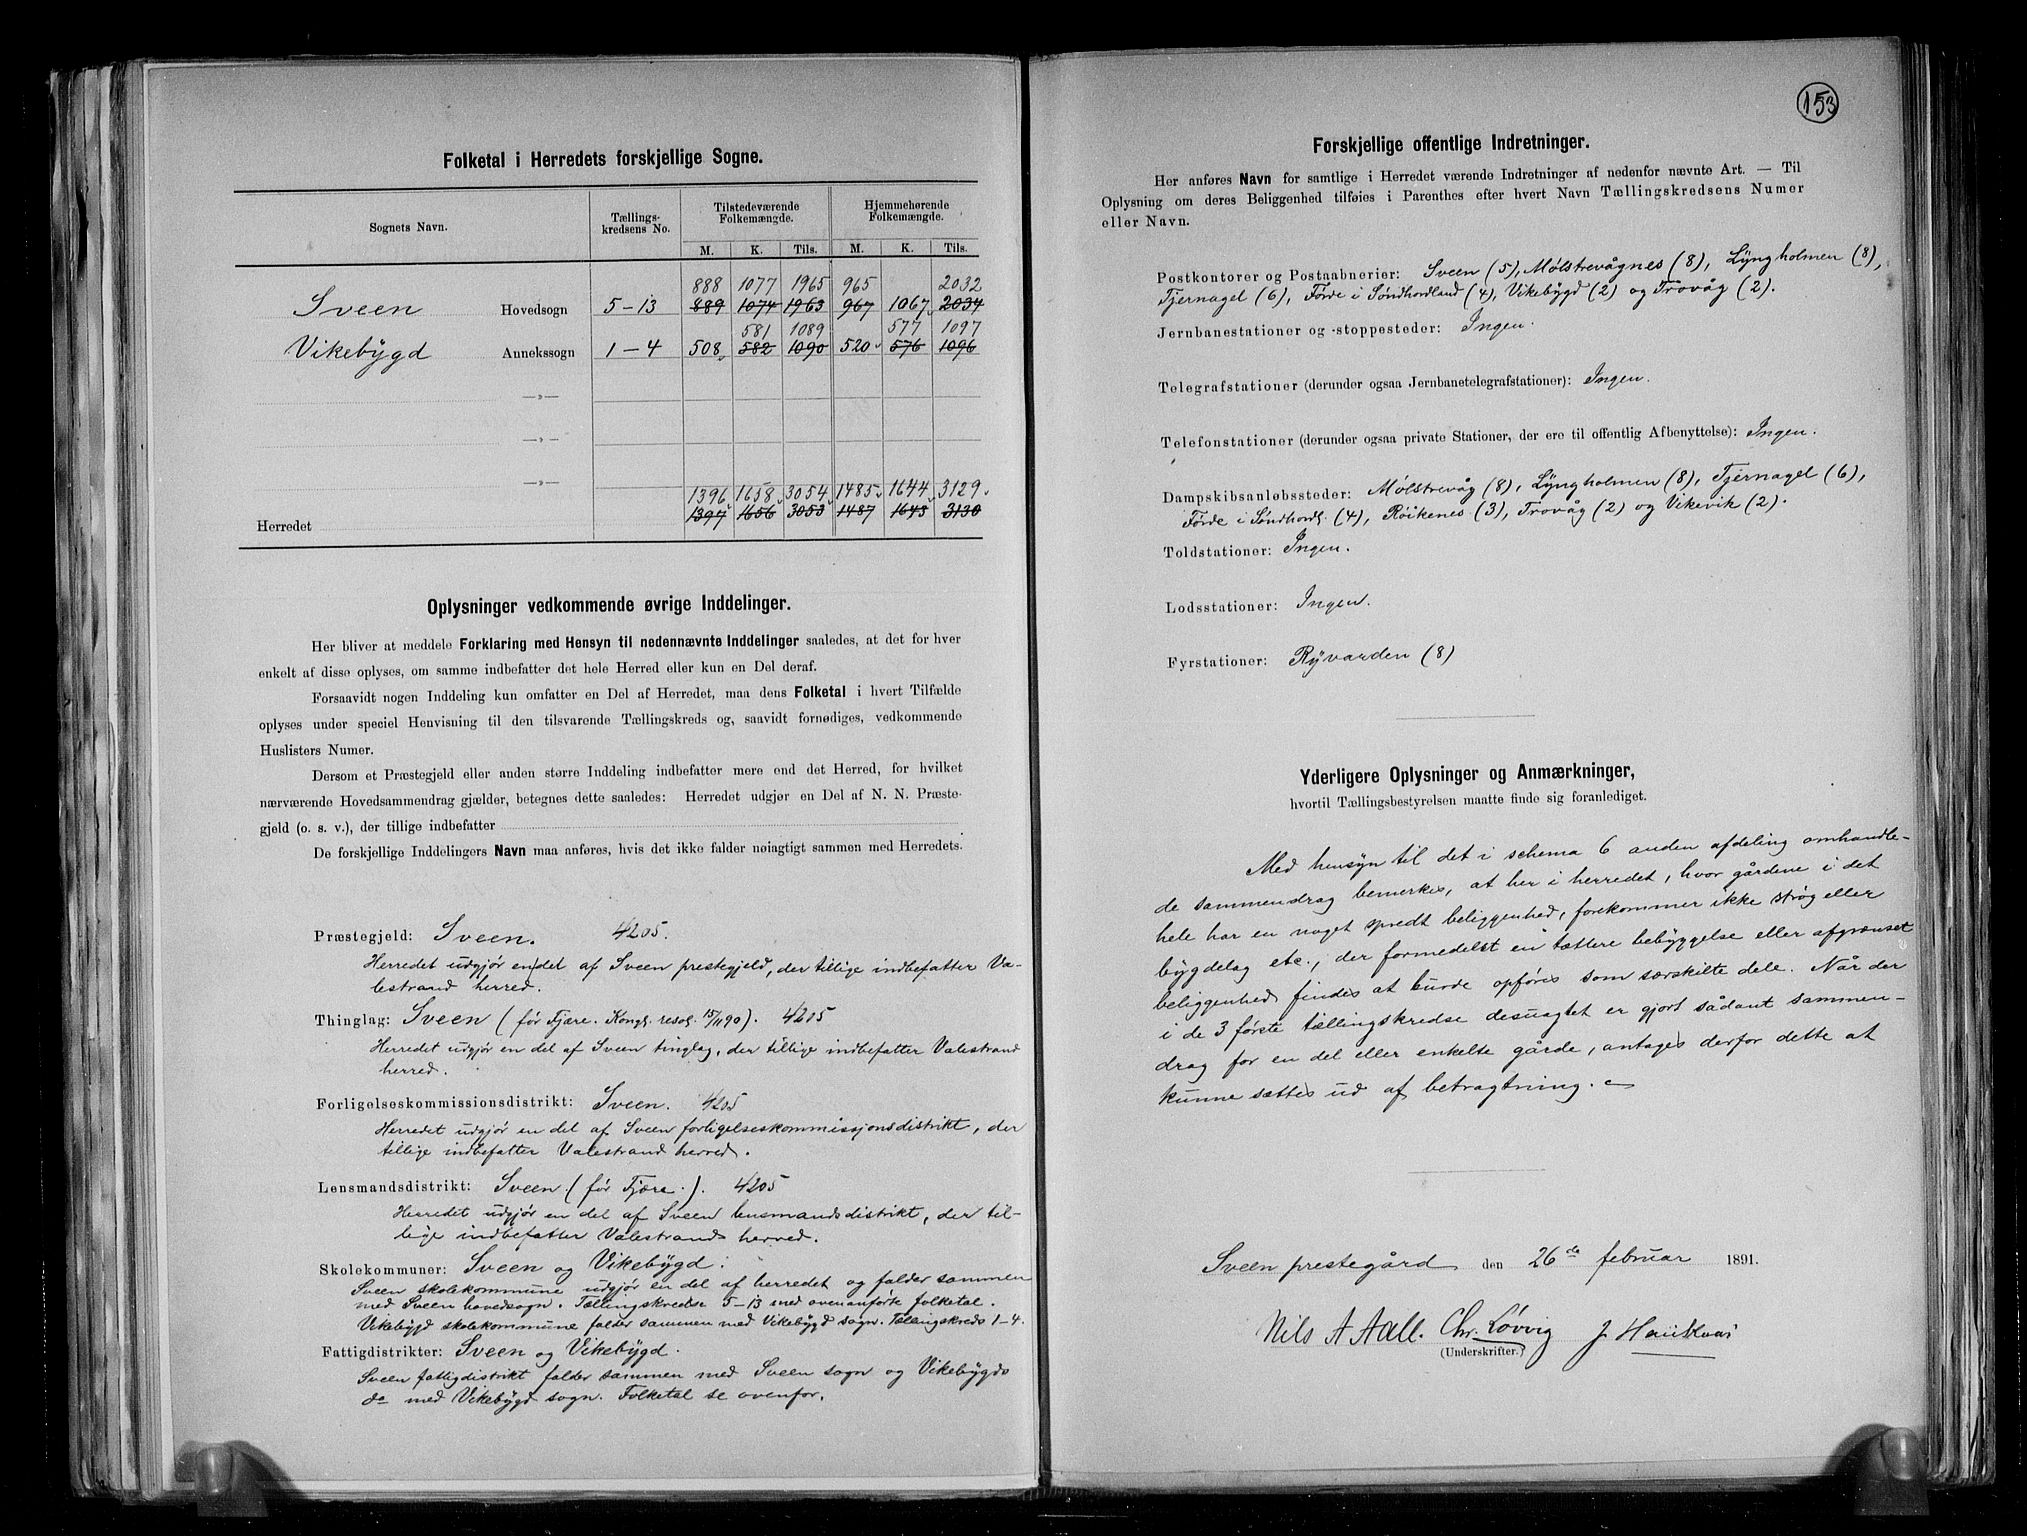 Folketal i Herredets forskjellige Sogne.
Sognets Navn. Tællings-kredsens No. Tilstedeværende Folkemængde. Hjemmehørende Folkemængde.
M. K. Tils. M. K. Tils.
888 1077 1965 965 2032
Sveen Hovedsogn 5-13 889 1074 1963 967 1067 2034
581 1089 577 1097
Vikebÿgd Annekssogn 1-4 508 582 1090 520 576 1096
—»—
—»—
—»—
1396 1658 3054 1485 1644 3129
Herredet 1397 1656 3053 1487 1643 3130
Oplysninger vedkommende øvrige Inddelinger.
Her bliver at meddele Forklaring med Hensyn til nedennævnte Inddelinger saaledes, at det for hver
enkelt af disse oplyses, om samme indbefatter det hele Herred eller kun en Del deraf.
Forsaavidt nogen Inddeling kun omfatter en Del af Herredet, maa dens Folketal i hvert Tilfælde
oplyses under speciel Henvisning til den tilsvarende Tællingskreds og, saavidt fornødiges, vedkommende
Huslisters Numer.
Dersom et Præstegjeld eller anden større Inddeling indbefatter mere end det Herred, for hvilket
nærværende Hovedsammendrag gjælder, betegnes dette saaledes: Herredet udgjør en Del af N. N. Præste-
gjeld (o. s. v.), der tillige indbefatter
De forskjellige Inddelingers Navn maa anføres, hvis det ikke falder nøiagtigt sammen med Herredets.
Præstegjeld: Sveen. 4205.
Herredet udgjør en del af Sveen prestegjeld, der tillige indbefatter Va-
lestrand herred.
Thinglag: Sveen (før Fjære. Kongl. resol. 15/11 90). 4205
Herredet udgjør en del af Sveen tinglag, der tillige indbefatter Valestrand
herred.
Forligelseskommissionsdistrikt: Sveen. 4205
Herredet udgjør en del af Sveen forligelseskommissjonsdistrikt, der
tillige indbefatter Valestrand herred.
Lensmandsdistrikt: Sveen (før Fjære.). 4205
Herredet udgjør en del af Sveen lensmandsdistrikt, der til-
lige indbefatter Valestrands herred.
Skolekommuner: Sveen og Vikebÿgd.
Sveen skolekommune udgjør en del af herredet og falder sammen
med Sveen hovedsogn. Tællingskredse 5-13 med ovenanførte folketal.
Vikebÿgd skolekommune falder sammen med Vikebÿgd sogn. Tællingskreds 1-4.
Fattigdistrikter: Sveen og Vikebÿgd.
Sveen fattigdistrikt falder sammen med Sveen sogn og Vikebÿgds
do med Vikebÿgd sogn. Folketal se ovenfor.
153
Forskjellige offentlige Indretninger.
Her anføres Navn for samtlige i Herredet værende Indretninger af nedenfor nævnte Art. — Til
Oplysning om deres Beliggenhed tilføies i Parenthes efter hvert Navn Tællingskredsens Numer
eller Navn.
Postkontorer og Postaabnerier: Sveen (5), Mølstrevågnes (8), Lÿngholmen (8),
Tjernagel (6), Førde i Søndhordland (4), Vikebÿgd (2) og Trovåg (2).
Jernbanestationer og -stoppesteder: Ingen.
Telegrafstationer (derunder ogsaa Jernbanetelegrafstationer): Ingen.
Telefonstationer (derunder ogsaa private Stationer, der ere til offentlig Afbenyttelse): Ingen.
Dampskibsanløbssteder: Mølstrevåg (8), Lÿngholmen (8), Tjernagel (6),
Førde i Søndhordl. (4), Røikenes (3), Trovåg (2) og Vikevik (2).
Toldstationer: Ingen.
Lodsstationer: Ingen.
Fyrstationer: Rÿvarden (8)
Yderligere Oplysninger og Anmærkninger,
hvortil Tællingsbestyrelsen maatte finde sig foranlediget.
Med hensÿn til det i schema 6 anden afdeling omhandle-
de sammendrag bemerkes, at her i herredet, hvor gårdene i det
hele har en noget spredt beliggenhed, forekommer ikke strøg eller
bÿgdelag etc., der formedelst en tættere bebÿggelse eller afgrænset
beliggenhed findes at burde opføres som særskilte dele. Når der
i de 3 første tællingskredse desuagtet er gjort sådant sammen-
drag for en del eller enkelte gårde, antages derfor dette at
kunne sættes ud af betragtning.
Sveen prestegård den 26de februar 1891.
Nils A Aall. Chr. Løvvig J Haukaas
(Underskrifter.)